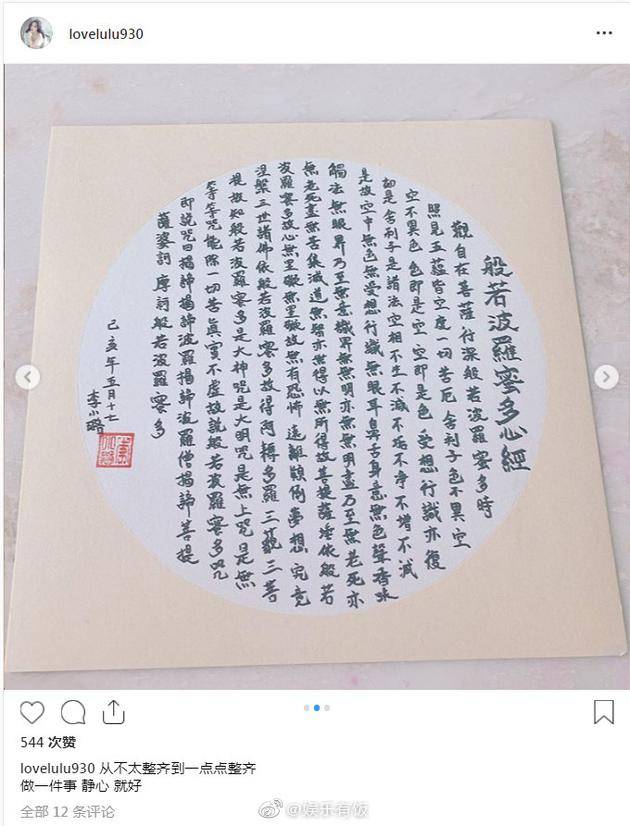 lovelulu930
般若波羅蜜多心經
觀自在菩薩行深般若波羅蜜多時
照見五蘊皆空度一切苦厄舍利子色不異空
空不異色色即是空空即是色受想行識亦復
如是舍利子是諸法空相不生不滅不垢不净不增不減
是故空中無色無受想行識無眼耳鼻舌身意無色聲香味
觸法無眼界乃至無意識界無無明亦無無明盡乃至無老死亦
無老死盡無苦集滅道無智亦無得以無所得故菩提薩埵依般若
波羅蜜多故心無罣礙無罣礙故無有恐怖遠離顛倒夢想究竟
涅槃三世諸佛依般若波羅蜜多故得阿耨多羅三藐三菩
提故知般若波羅蜜多是大神咒是大明咒是無上咒是無
等等咒能除一切苦真實不虛故説般若波羅蜜多咒
即説咒曰揭諦揭諦波羅揭諦波羅僧揭諦菩提
薩婆訶 摩訶般若波羅蜜多
己亥年五月十七
李小璐
544 次赞
lovelulu930 从不太整齐到一点点整齐
做一件事 静心 就好
全部 12 条评论
@娱乐有饭